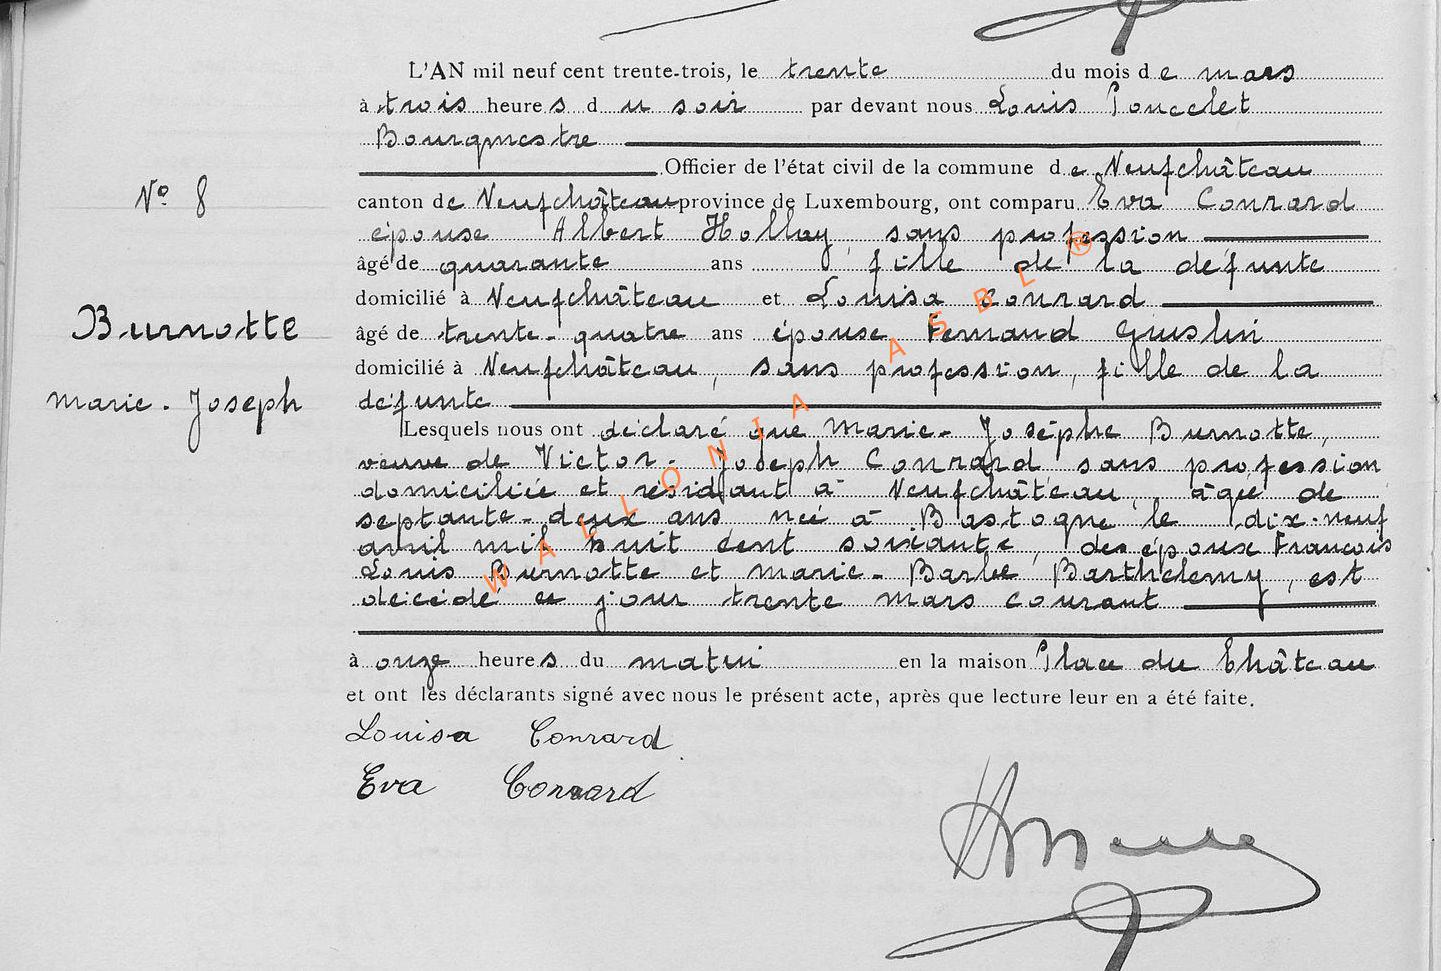 L'AN mil neuf cent trente-trois, le trente du mois de mars
à trois heures du soir par devant nous Louis Poncelet
Bourgmestre
Officier de l'état civil de la commune de Neufchâteau
N° 8
canton de Neufchâteau province de Luxembourg, ont comparu Eva Conrard
épouse Albert Hollay, sans profession
âgé de quarante ans fille de la défunte
domicilié à Neufchâteau et Louisa Conrard
Burnotte
âgé de trente-quatre ans épouse Fernand Guslin
domicilié à Neufchâteau, sans profession, fille de la
Marie-Joseph
défunte
Lesquels nous ont déclaré que Marie-Josèphe Burnotte,
veuve de Victor-Joseph Conrard sans profession
domiciliée et résidant à Neufchâteau, âgée de
septante-deux ans née à Bastogne le dix-neuf
avril mil huit cent soixante, des époux François
Louis Burnotte et Marie-Barbe Barthelemy, est
décédé ce jour trente mars courant
à onze heures du matin en la maison Place du Château
et ont les déclarants signé avec nous le présent acte, après que lecture leur en a été faite.
Louisa Conrard
Eva Conrard
WALLONIA ASBL ®